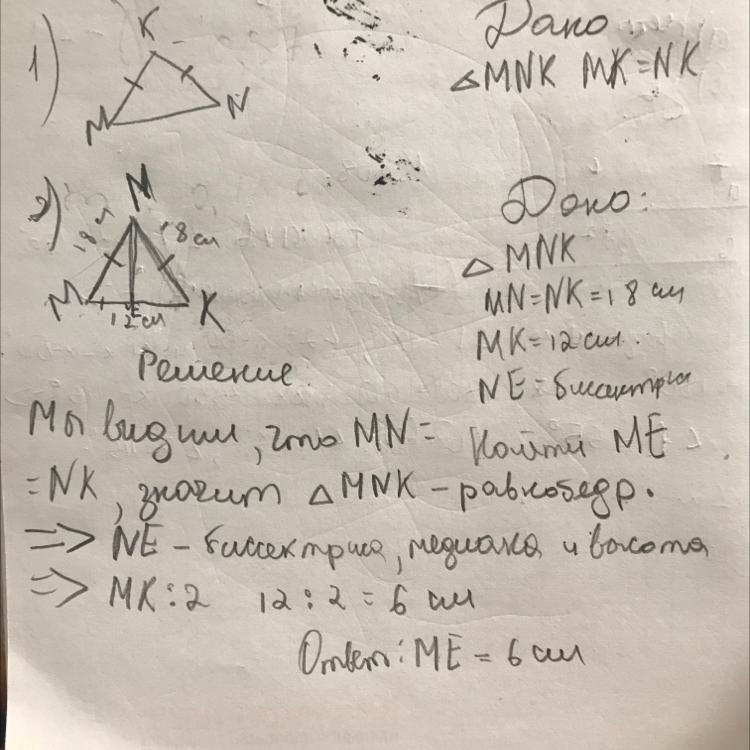 1) K
M N
Дано
△MNK MK=NK
2) M
18 см 18 см
M E K
12 см
Дано:
△ MNK
MN=NK=18 см
MK=12 см.
NE=биссектриса
Найти ME
Решение
Мы видим, что MN=
=NK, значит △MNK – равнобедр.
=> NE – биссектриса, медиана и высота
=> MK:2 12:2=6 см
Ответ: ME = 6 см